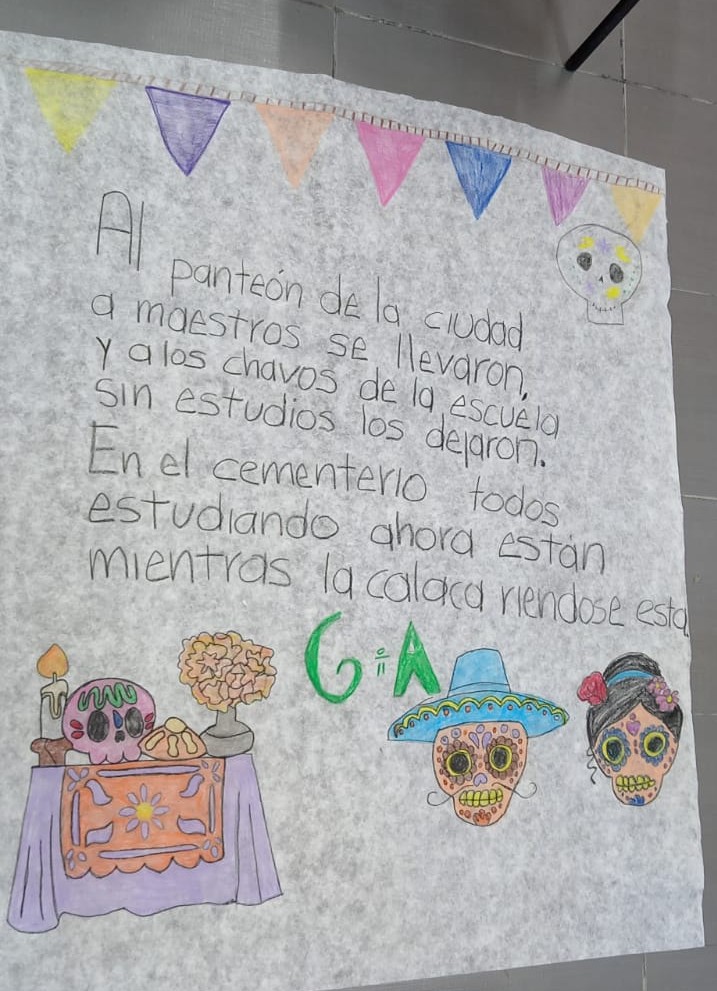 Al
panteón de la ciudad
a maestros se llevaron,
y a los chavos de la escuela
sin estudios los dejaron.
En el cementerio todos
estudiando ahora están
mientras la calaca riendose esta
6 A